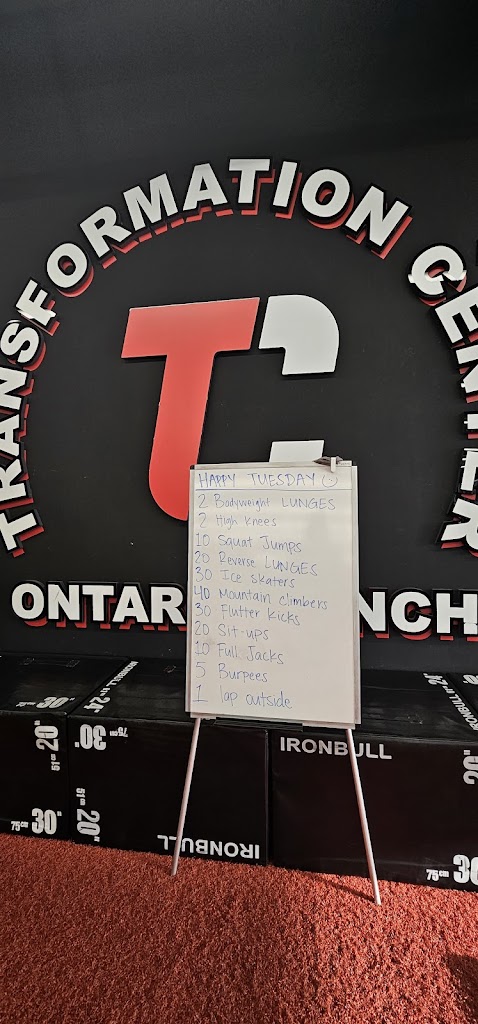 TRANSFORMATION CENTER
TC
HAPPY TUESDAY
2 Bodyweight LUNGES
2 High Knees
10 Squat Jumps
20 Reverse LUNGES
30 Ice skaters
40 Mountain climbers
30 Flutter Kicks
20 Sit-ups
10 Full Jacks
5 Burpees
1 lap outside
ONTAR NCH
30"
20"
51cm
75cm 30"
IRONBULL
24"
30"
75cm
51cm
20"
IRONBULL
IRONBULL
24"
20"
75cm 30